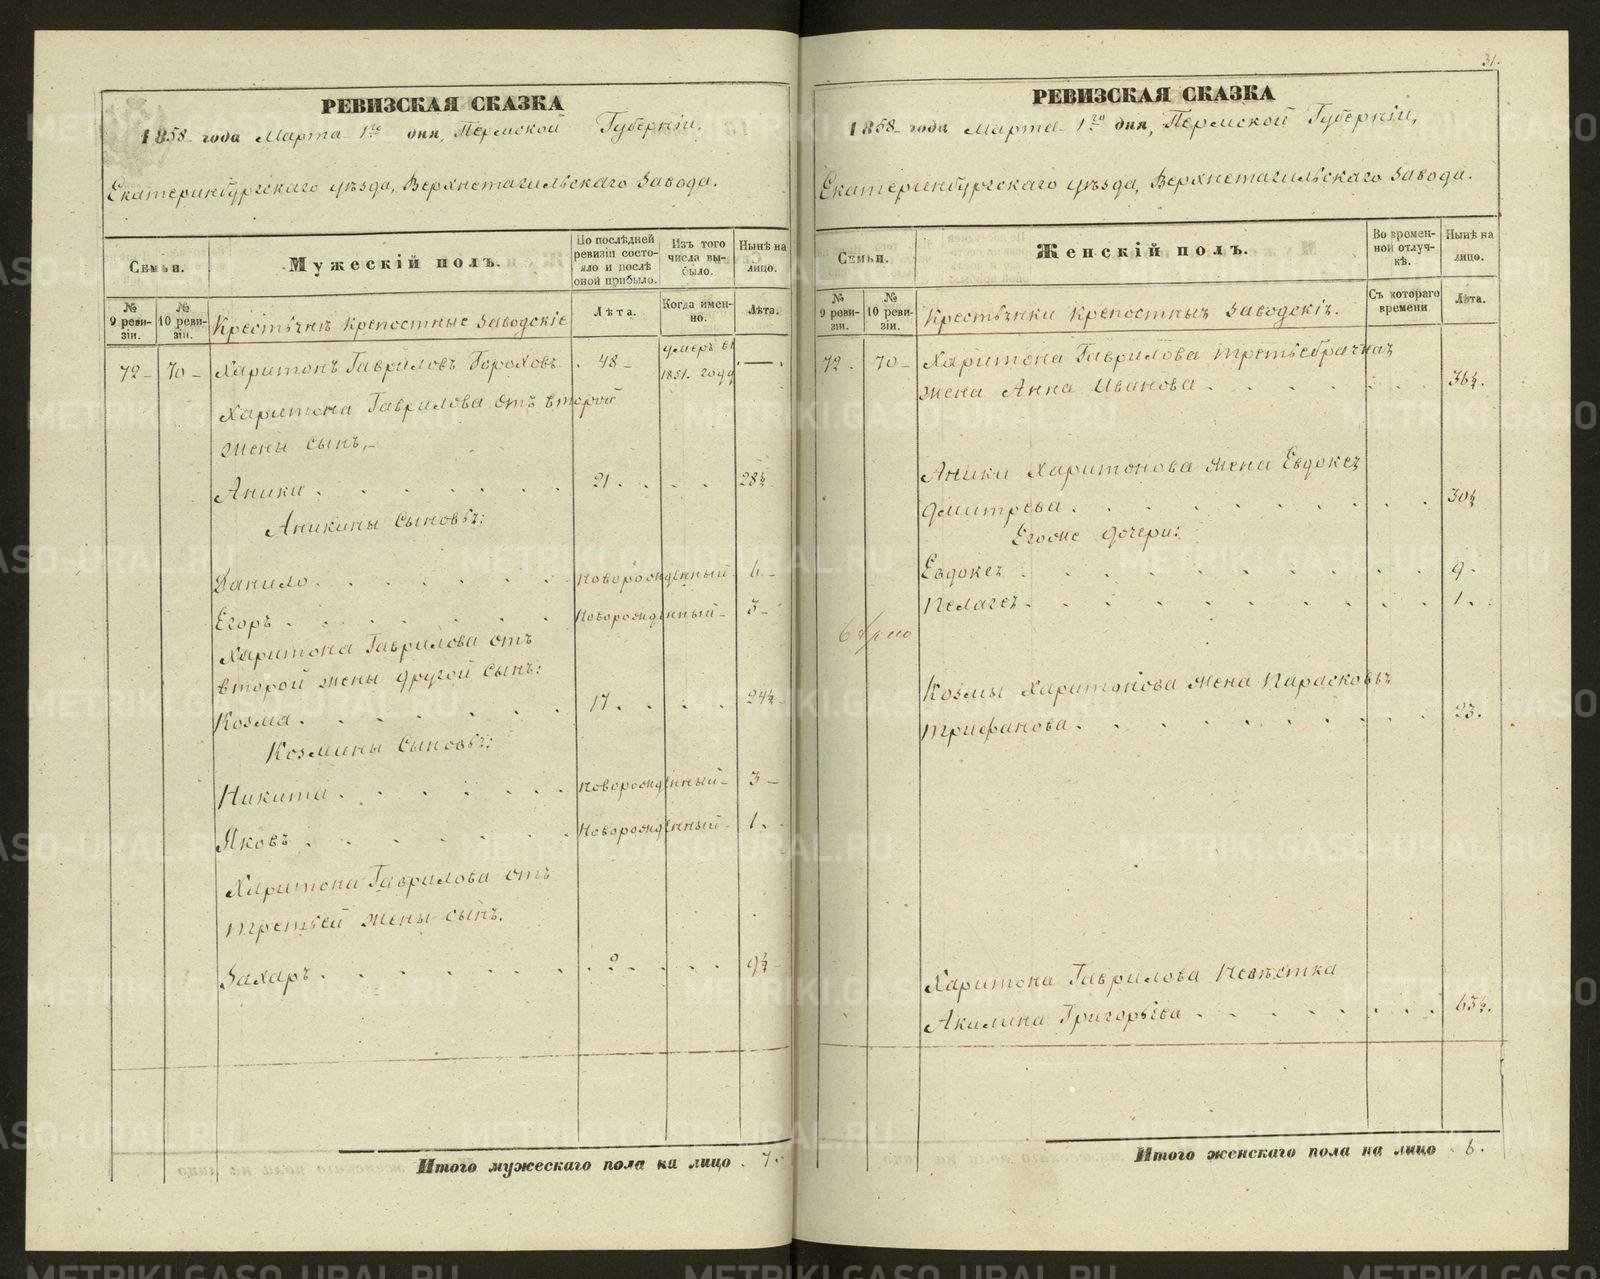 РЕВИЗСКАЯ СКАЗКА
1858 года Марта 1го дня, Пермской Губернiи,
Екатеринбургскаго уѣзда, Верхнетагильскаго завода.
Семьи.
Мужескiй полъ.
По послѣдней ревизiи состояло и послѣ оной прибыло.
Изъ того числа выбыло.
Нынѣ на лицо.
№ 9 ревизiи.
№ 10 ревизiи.
Крестьяне крепостные заводскiе
Лѣта.
Когда именно.
Лѣта.
72 - 70 - Харитонъ Гавриловъ Гороховъ . 48 - умеръ въ 1851. году —
Харитона Гаврилова отъ второй
жены сынъ,-
Аника . . . . . . . 21 . . . . 28½
Аникины сыновья:
Данило . . . . . . . новорожденный 6 -
Егоръ . . . . . . . новорожденный - 3 -
Харитона Гаврилова отъ
второй жены другой сынъ:
Козма . . . . . . . 17 . . . . 24½
Козмины сыновья:
Никита . . . . . . . новорожденный - 3 -
Яковъ . . . . . . . новорожденный - 1.
Харитона Гаврилова отъ
третьей жены сынъ.
Захаръ . . . . . . . 9½
Итого мужескаго пола на лицо . 7.
31.
РЕВИЗСКАЯ СКАЗКА
1858 года Марта 1го дня, Пермской Губернiи,
Екатеринбургскаго уѣзда, Верхнетагильскаго завода.
Семьи.
Женскiй полъ.
Во временной отлучкѣ.
Нынѣ на лицо.
№ 9 ревизiи.
№ 10 ревизiи.
Крестьянки крепостныя заводскiя.
Съ котораго времени
Лѣта.
72 . 70 - Харитона Гаврилова третьебрачная
жена Анна Иванова . . . . . . 36½.
Аники Харитонова жена Евдокея
Дмитрева . . . . . . . . . 30½
Егоже дочери:
Евдокея . . . . . . . . . . 9.
Пелагея . . . . . . . . . . 1.
Козмы Харитонова жена Парасковья
Трифанова . . . . . . . . . 23.
Харитона Гаврилова невѣстка
Акилина Григорьева . . . . . . . 65½.
Итого женскаго пола на лицо . 6.
METRIKI.GASO-URAL.RU